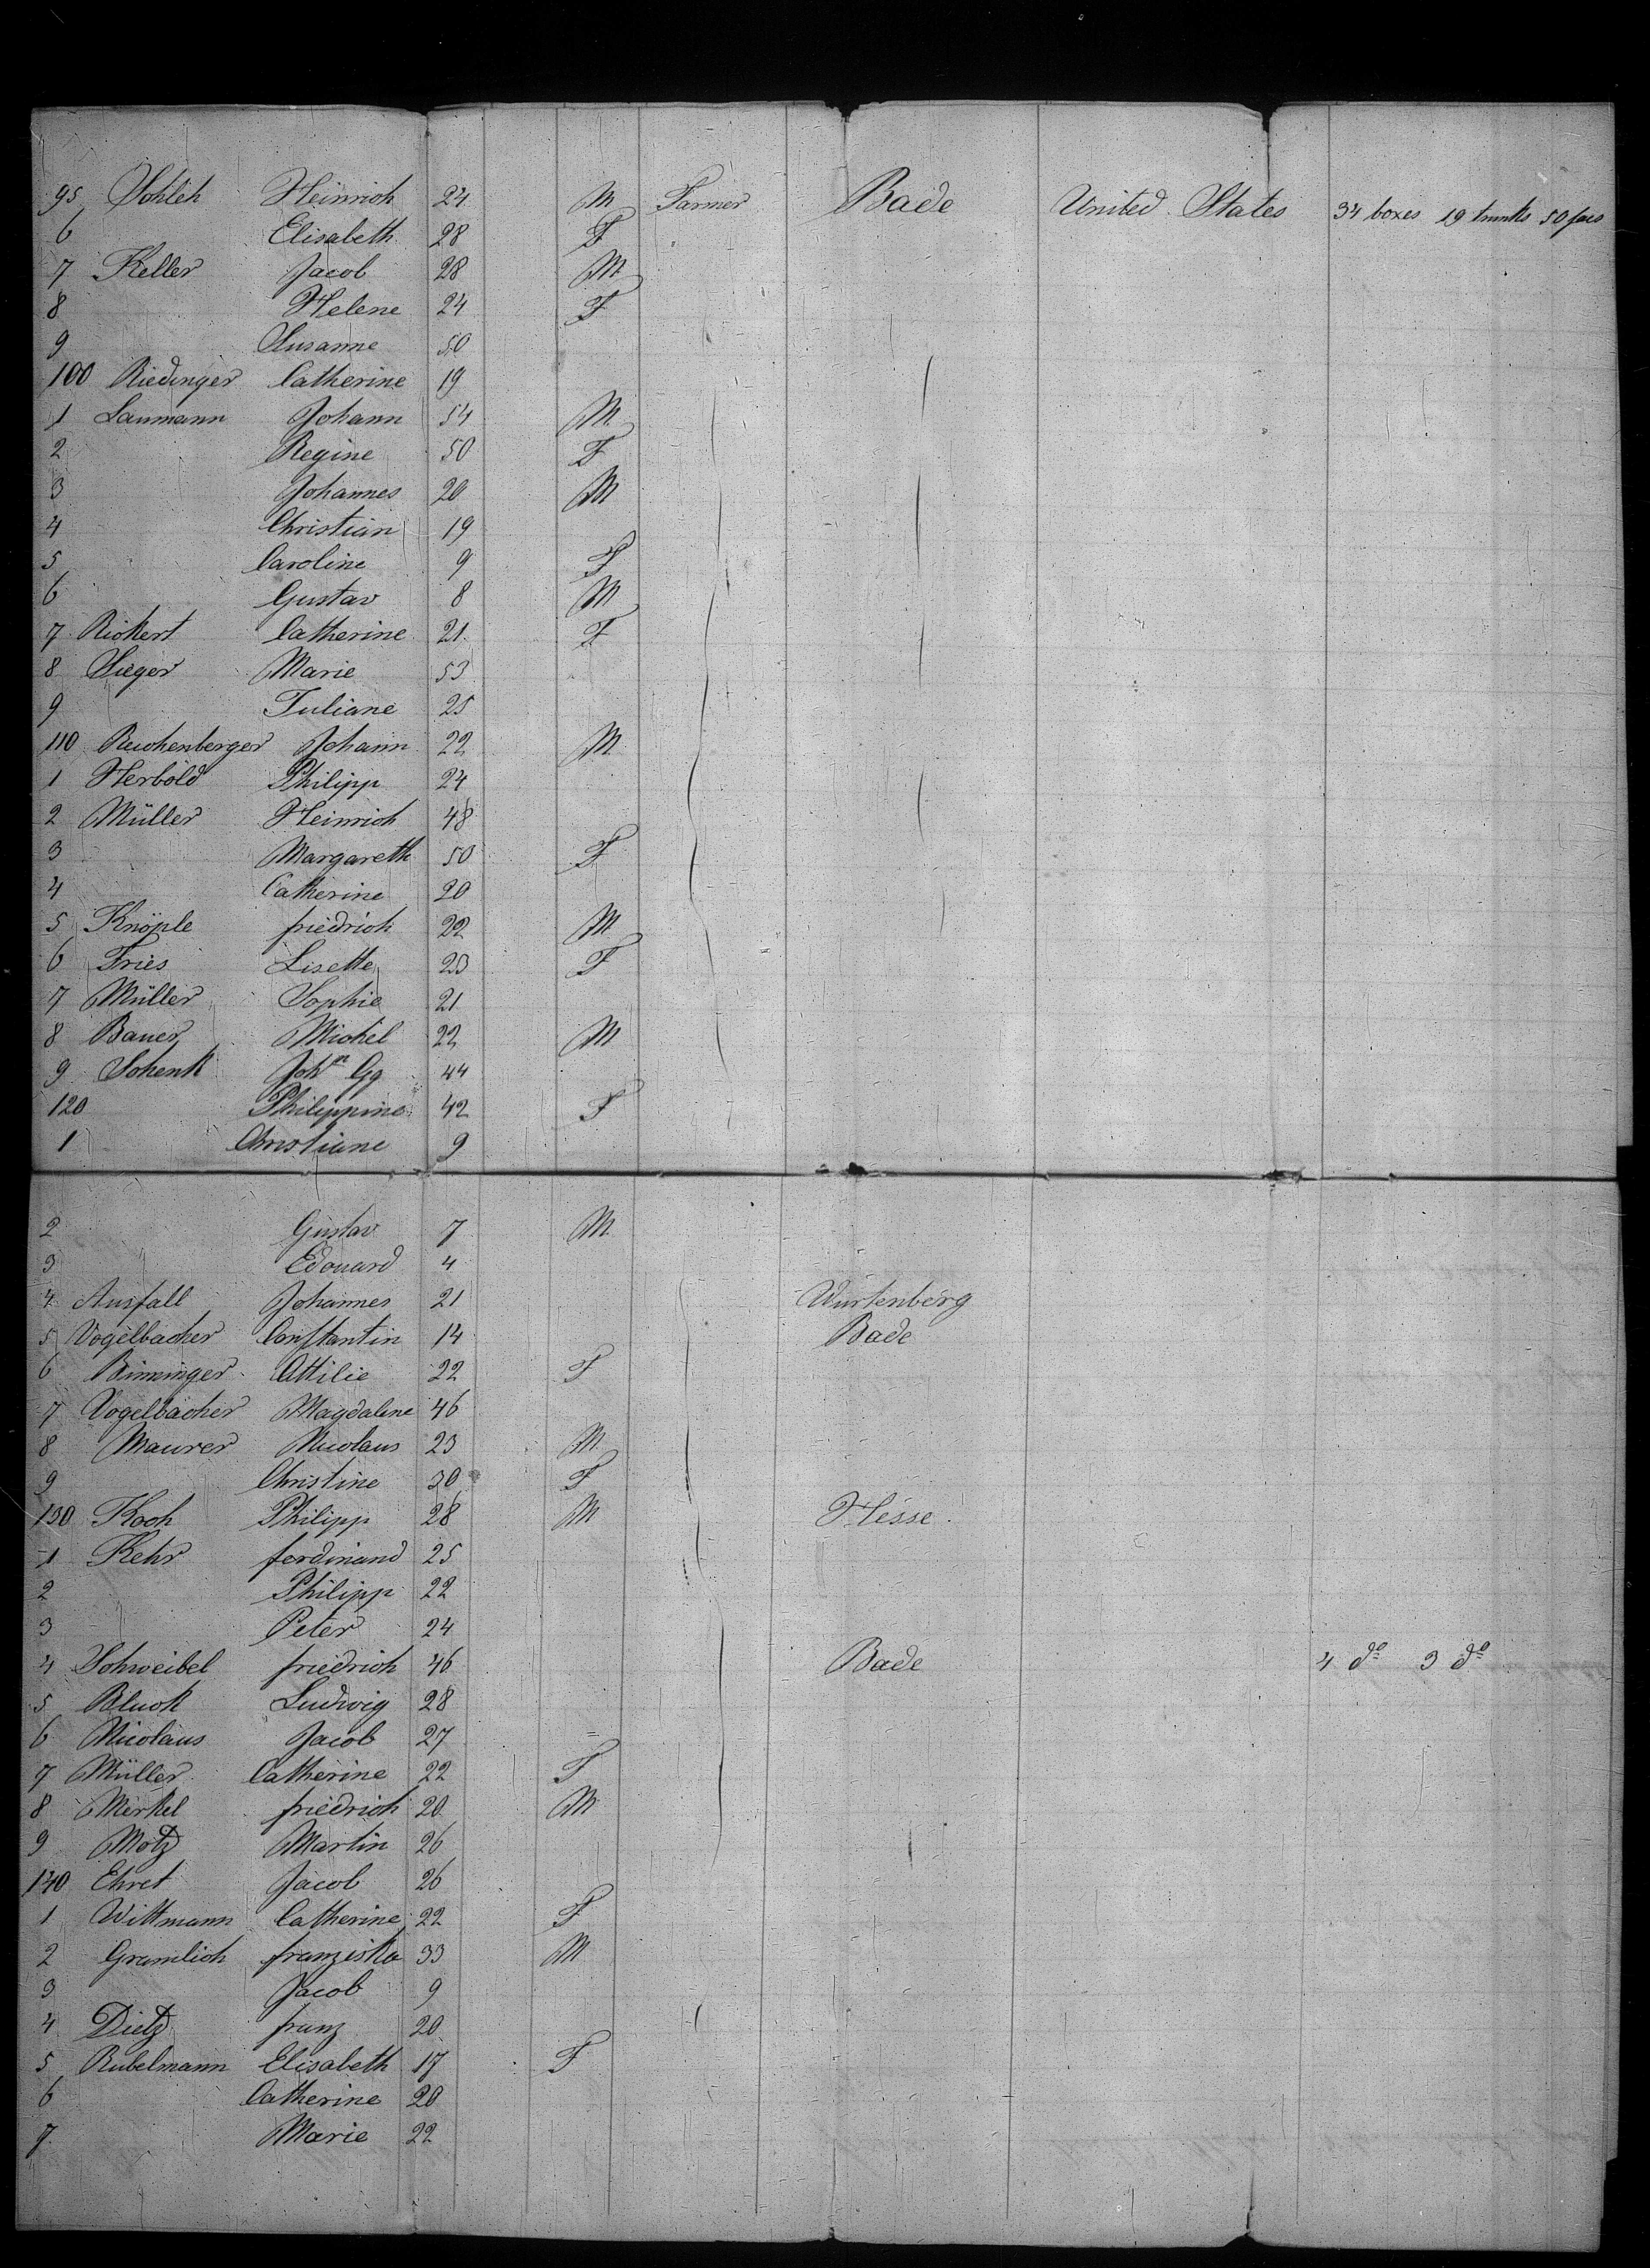 95 Schleh Heinrich 24 M Farmer Bade United States 34 boxes 19 trunks 50 pacs
6 Elisabeth 28 F
7 Keller Jacob 28 M
8 Helene 24 F
9 Susanne 50
100 Riedinger Catherine 19
1 Laumann Johann 54 M
2 Regine 50 F
3 Johannes 20 M
4 Christian 19
5 Caroline 9 F
6 Gustav 8 M
7 Rickert Catherine 21 F
8 Sieger Marie 53
9 Juliane 25
110 Reichenberger Johann 22 M
1 Herbold Philipp 24
2 Müller Heinrich 48
3 Margareth 50 F
4 Catherine 20
5 Knöple friedrich 22 M
6 Fries Lisette 23 F
7 Müller Sophie 21
8 Bauer Michel 22 M
9 Schenk Johⁿ Gg 44
120 Philippine 42 F
1 Christiane 9
2 Gustav 7 M
3 Edouard 4
4 Ausfall Johannes 21 Wurtenberg
5 Vogelbacher Constantin 14 Bade
6 Binninger Ottilie 22 F
7 Vogelbacher Magdalene 46
8 Maurer Nicolaus 23 M
9 Christine 30 F
130 Koch Philipp 28 M Hesse
1 Kehr ferdinand 25
2 Philipp 22
3 Peter 24
4 Schweibel friedrich 46 Bade 4 dº 3 dº
5 Bluck Ludwig 28
6 Nicolaus Jacob 27
7 Müller Catherine 22 F
8 Merkel friedrich 20 M
9 Motz Martin 26
140 Ehret Jacob 26
1 Wittmann Catherine 22 F
2 Gramlich franziska 33 M
3 Jacob 9
4 Dietz franz 20
5 Rubelmann Elisabeth 17 F
6 Catherine 20
7 Marie 22